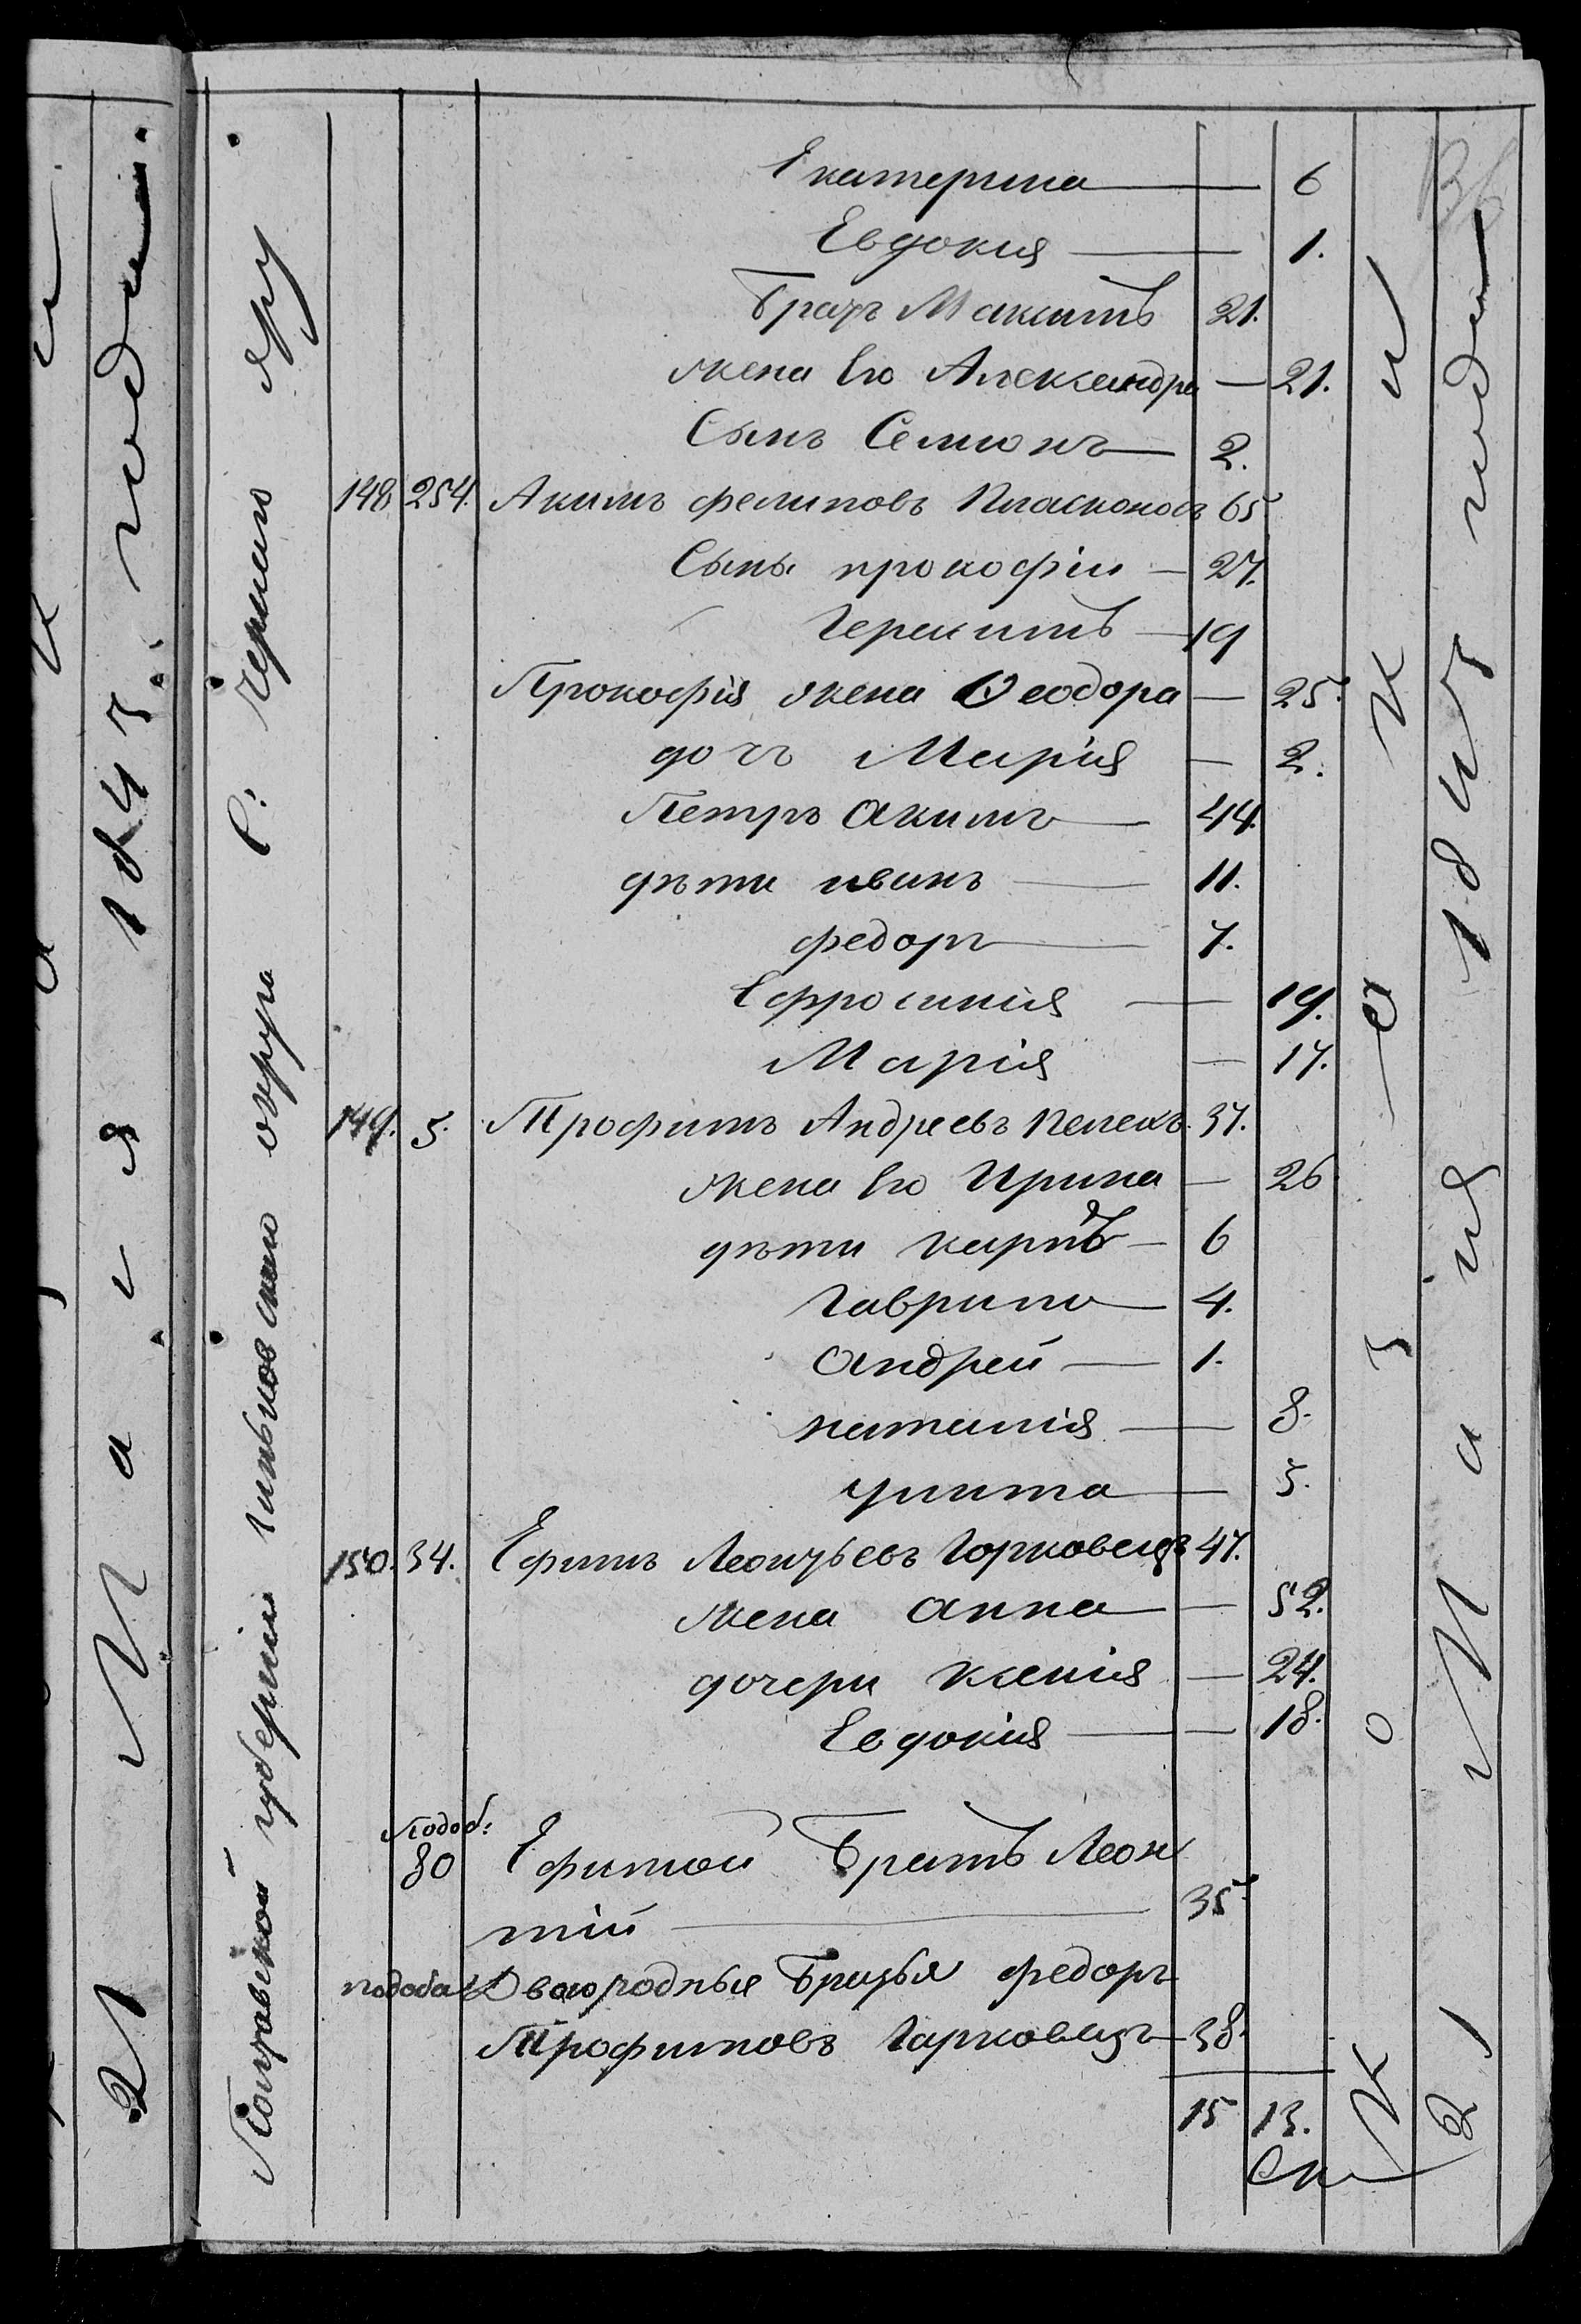 Екатерина — 6
Евдокия — 1.
Братъ Максимъ 21.
жена Его Александра — 21.
Сынъ Семионъ — 2.
148 254. Акимъ Фелиповъ Пласконосъ 65
Сыны прокофіи — 27.
Герасимъ — 19
Прокофія жена Ѳеодора — 25.
дочь Марія — 2.
Петръ Акимъ — 44.
дѣти иванъ — 11.
федоръ — 7.
Ефросинія — 19.
Марія — 17.
149. 5. Трофимъ Андреевъ Пепекъ 37.
жена Его Ирина — 26
дѣти карпъ — 6
Гаврило — 4.
Андрей — 1.
наталія — 8.
улита — 5.
150. 34. Ефимъ Леонтьевъ Горковецъ 47.
жена Анна — 52.
дочери Ксенія — 24.
Евдокія — 18.
подоб:
80 Ефимой Братъ Леон
тій — 35
подоба Двоюродные Братья федоръ
Трофимовъ Гарковецъ — 38.
15 13.
Полтавской губерніи
округа
21 Маія 1843 года
21 Маія 1843 года